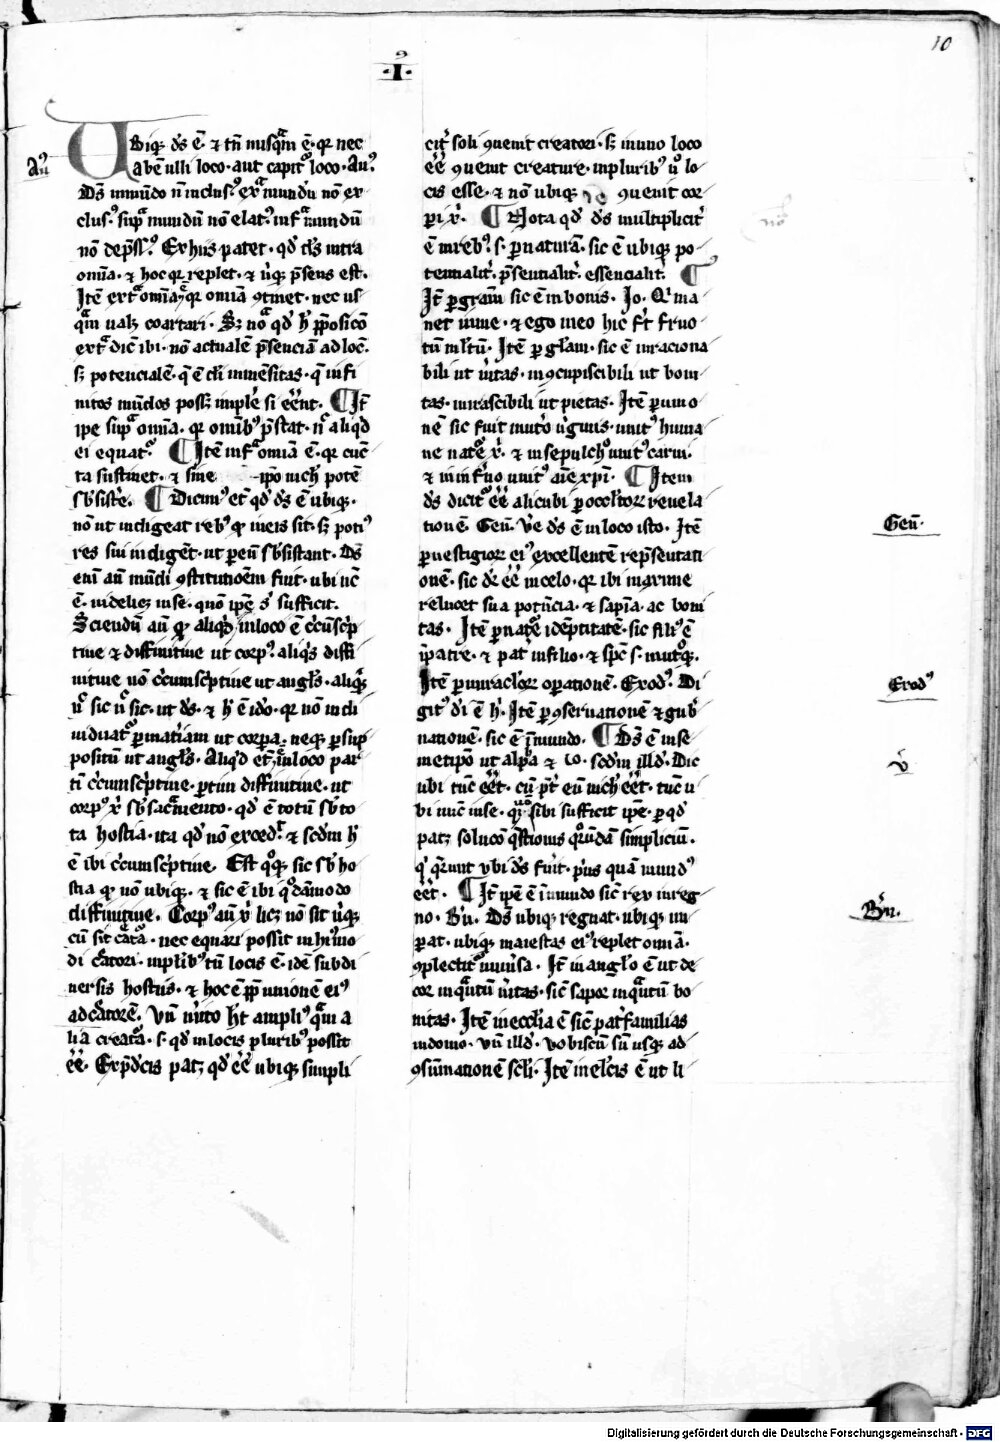 10
·I·
UBiq; d̄s ē· ⁊ tn̄ nusq̄m ē· qꝛ nec
Auꝰ
abē ulli loco· aut capitᷣ loco· Auꝰ
Ds̄ in mūdo n̄ inclusꝰ ext̄ mundū nō ex
clusꝰ· sup̄ mundū nō elatꝰ· inf̄ mundū
nō dep̄ssꝰ. Ex hiis patet· qd̓ ds̄ intra
omīa· ⁊ hoc qꝛ replet· ⁊ ūq; p̄sens est·
Itē ext̄ omīa, qꝛ omīa ꝯtinet· nec us
q̄m ualꝫ coartari· Sꝫ nō qd̓ h̓ ꝓposicō
ext̄ dicē ibi· nō actualē p̄senciā ad locū·
sꝫ potencialē· q̄ ē di inmēsitas· q̄ infi
nitos mūdos possꝫ implē si ēēnt· ¶ Itē
ipe sup̄ omīa· qꝛ omībꝰ p̄stat· nc̄ aliqd
ei equatᷣ· ¶ Itē inf̄ omīa ē· qꝛ cūc
ta sustinet· ⁊ sine ip̄o nich̓ potē
sb̓sistē· ¶ Dicimꝰ et̄ qd̓ ds̄ ē ubiq;·
nō ut indigeat rebꝰ qꝛ in eis sit· sꝫ potiꝰ
res sui indigēt· ut p̲ eū sb̓sistant· Ds̄
eni an̄ mūdi ꝯstitutioēm fuit· ubi nc̄
ē· uidelicꝫ in se· quō ipē s̓ sufficit·
Sciendū aū qꝛ aliqd̓ in loco ē cc̓ūsc̓p
tiue ⁊ diffinitiue ut corpꝰ· aliqd̓s diffi
nitiue nō cc̓umsc̓ptiue ut angl̓s· aliqd̓
n̓ sic n̓ sic· ut ds̄· ⁊ h̓ ē ido· qꝛ nō indi
uiduatᷣ p̲ mat̓iam ut corp̲a· neq; p̲ sup
positū ut angl̓s· Aliqd̓ et̄ ē in loco par
ti cc̓umsc̓ptiue· p̲tim diffinitiue· ut
corpꝰ xp̄i sb̓ sac̄mento· qd̓ ē totū sb̓ to
ta hostia· ita qd̓ nō excedit· ⁊ scd̓m h̓
ē ibi cc̓umsc̓ptiue· Est qꝫ sic sb̓ ho
stia qꝛ nō ubiq;· ⁊ sic ē ibi qd̓ammodo
diffinitiue· Corpꝰ aū xp̄i licꝫ nō sit ūq;
cū sit c̓atᷣa· nec equari possit in hꝰ mo
di c̓atori· in pl̓ibꝰ tn̄ locis ē· idē sub di
uersis hostiis· ⁊ hoc ē ꝓp̄ unionē eiꝰ
ad c̓atorē· Vn̄ unito h̓t ampliꝰ q̄m a
lia creatᷣa· s· qd̓ in locis p̲luribꝰ possit
ēē· Exp̄dc̄is patꝫ qd̓ ēē ubiq; simpli
cit̓ soli ꝯuenit creatori· sꝫ in uno loco
ēē ꝯuenit creature· in pluribꝰ ū lo
cis esse· ⁊ nō ubiq; ꝯuenit cor
p̲i xp̄i· ¶ Nota qd̓ ds̄ multiplicit̓
ē in rebꝰ· s· p̲ naturā· sic ē ubiq; po
tentialit̓· p̄sentialit̓· essencialit̓· ¶
Itē p̲ gr̄am sic ē in bonis· Io· Qi ma
net in me· ⁊ ego in eo hic fert fruc
tū ml̓tū· Itē p̲ gl̓am· sic ē in raciona
bili ut ūitas· in ꝯcupiscibili ut boni
tas· in irascibili ut pietas· Itē p̲ unio
nē sic fuit in ut̓o ūginis· unitꝰ huma
ne nat̓e x̓· ⁊ in sepulch̓o unitꝰ carni·
⁊ in inf̓no unitꝰ aīe xp̄i· ¶ Item
ds̄ dicitᷣ ēē alicubi p̲ occl̓tor̲ reuela
tionē· Gen̄· Ve ds̄ ē in loco isto· Itē
Gen̄·
p̲ uestigior̲ eiꝰ excellentē rep̄sentati
onē· sic dr̄ ēē in celo· qꝛ ibi maxime
relucet sua potn̄cia· ⁊ sapīa· ac boni
tas· Itē p̲ nat̓e idēptitatē· sic filiꝰ ē
ī patre· ⁊ pat̓ in filio· ⁊ sp̄c s· in utroq;·
Itē p̲ miraclor̲ op̲ationē· Exodꝰ· Di
Exodꝰ
gitꝰ di ē h̓· Itē p̲ ꝯseruationē ⁊ gub̓
nationē· sic ē ī mundo· ¶ Ds̄ ē in se
met ipō ut alpha ⁊ ω· scd̓m illd̓· Dic
v̓
ubi tūc ēēt· cū p̄t̓ eū nich̓ ēēt· tūc u
bi nunc in se· qm̄ sibi sufficit ipē· p̲ qd̓
patꝫ soluco q̄stionis qr̄ūdā simpliciū·
q̓ qr̄unt ubi ds̄ fuit· p̓us quā mundꝰ
ēēt· ¶ Itē ipē ē ī mundo sic̄ rex in reg
no· B̓n· Ds̄ ubiq; regnat· ubiq; im
B̓n·
p̲at· ubiq; maiestas eiꝰ replet omīa·
ꝯplectitᷣ uniūsa· Itē in angl̓o ē ut de
cor in q̄ntū ūitas· sic̄ sapor in q̄ntū bo
nitas· Itē in ecc̄lia ē sic̄ pat̓familias
in domo· vn̄ illd̓· vobiscū sū usq; ad
ꝯsūmationē scl̓i· Itē in el̓cis ē ut li
Digitalisierung gefördert durch die Deutsche Forschungsgemeinschaft - DFG